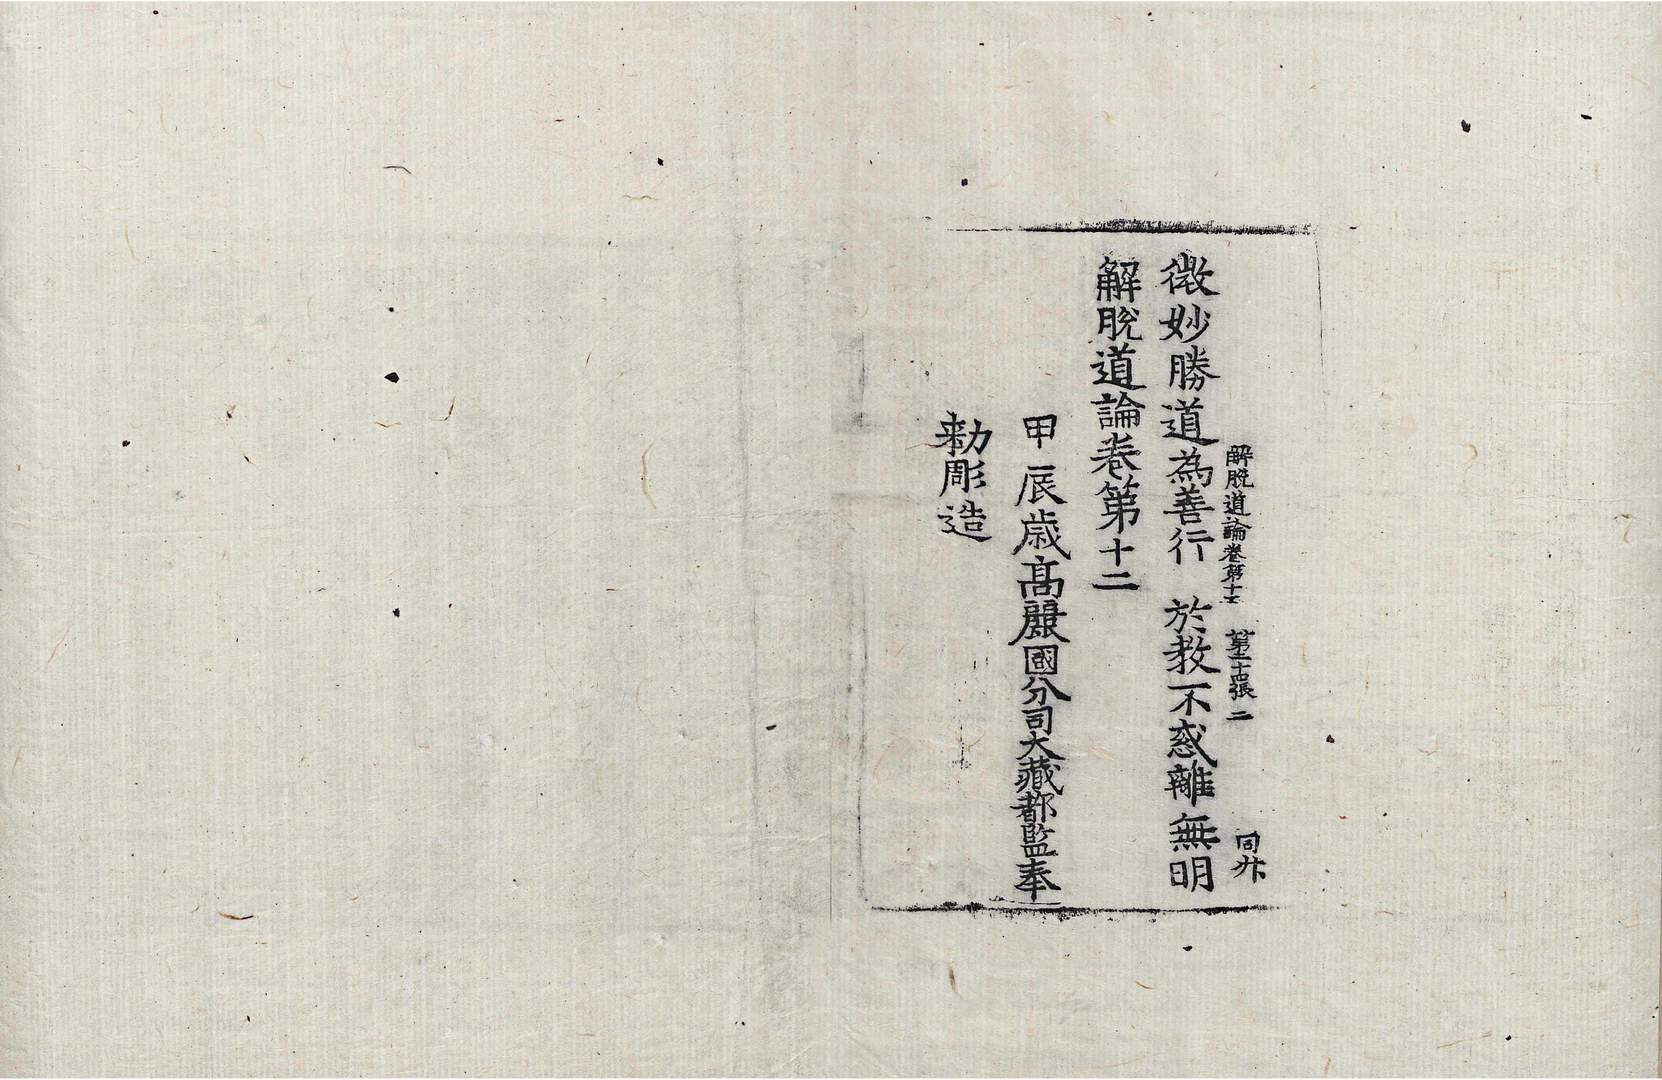 解脫道論卷第十二 第二十四張 同
微妙勝道為善行 於教不惑離無明
解脫道論卷第十二
甲辰歲高麗國分司大藏都監奉
勅彫造